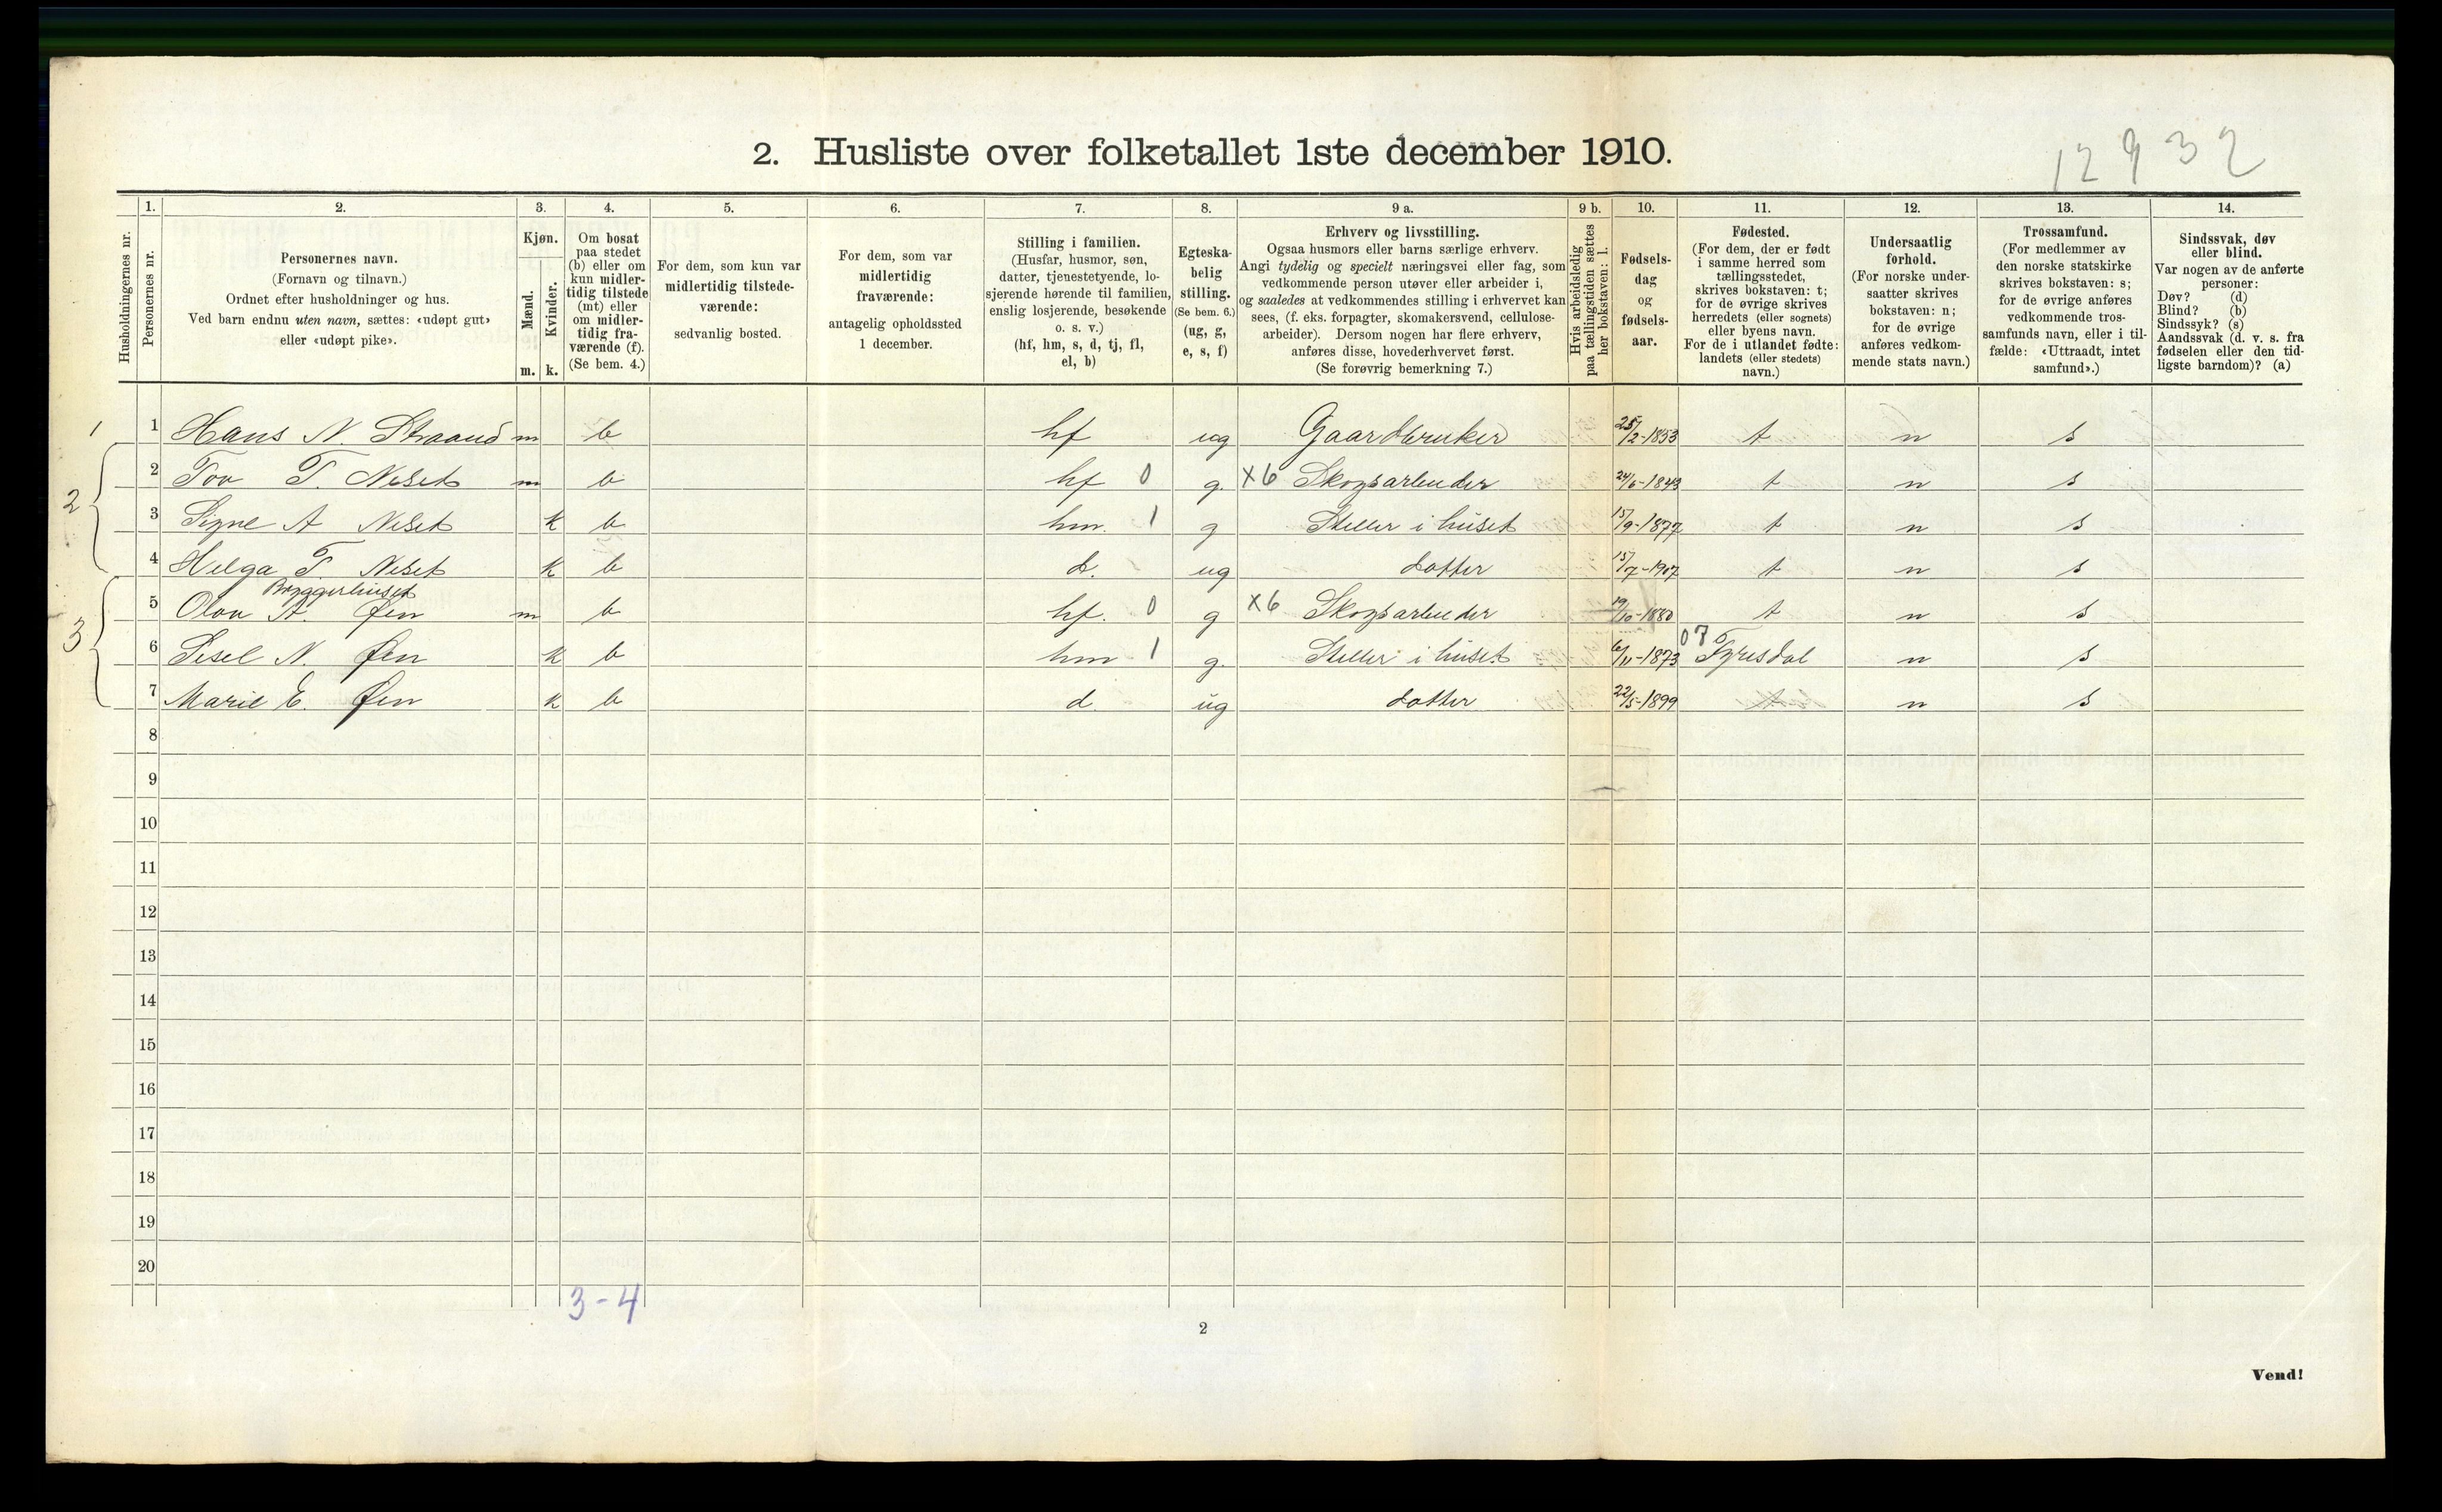 2. Husliste over folketallet 1ste december 1910.
12932
1. 2. 3. 4. 5. 6. 7. 8. 9 a. 9 b. 10. 11. 12. 13. 14.
Husholdningernes nr.
Personernes nr.
Personernes navn.
(Fornavn og tilnavn.)
Ordnet efter husholdninger og hus.
Ved barn endnu uten navn, sættes: «udøpt gut»
eller «udøpt pike».
Kjøn.
Mænd.
Kvinder.
m. k.
Om bosat
paa stedet
(b) eller om
kun midler-
tidig tilstede
(mt) eller
om midler-
tidig fra-
værende (f).
(Se bem. 4.)
For dem, som kun var
midlertidig tilstede-
værende:
sedvanlig bosted.
For dem, som var
midlertidig
fraværende:
antagelig opholdssted
1 december.
Stilling i familien.
(Husfar, husmor, søn,
datter, tjenestetyende, lo-
sjerende hørende til familien,
enslig losjerende, besøkende
o. s. v.)
(hf, hm, s, d, tj, fl,
el, b)
Egteska-
belig
stilling.
(Se bem. 6.)
(ug, g,
e, s, f)
Erhverv og livsstilling.
Ogsaa husmors eller barns særlige erhverv.
Angi tydelig og specielt næringsvei eller fag, som
vedkommende person utøver eller arbeider i,
og saaledes at vedkommendes stilling i erhvervet kan
sees, (f. eks. forpagter, skomakersvend, cellulose-
arbeider). Dersom nogen har flere erhverv,
anføres disse, hovederhvervet først.
(Se forøvrig bemerkning 7.)
Hvis arbeidsledig
paa tællingstiden sættes
her bokstaven: l.
Fødsels-
dag
og
fødsels-
aar.
Fødested.
(For dem, der er født
i samme herred som
tællingsstedet,
skrives bokstaven: t;
for de øvrige skrives
herredets (eller sognets)
eller byens navn.
For de i utlandet fødte:
landets (eller stedets)
navn.)
Undersaatlig
forhold.
(For norske under-
saatter skrives
bokstaven: n;
for de øvrige
anføres vedkom-
mende stats navn.)
Trossamfund.
(For medlemmer av
den norske statskirke
skrives bokstaven: s;
for de øvrige anføres
vedkommende tros-
samfunds navn, eller i til-
fælde: «Uttraadt, intet
samfund».)
Sindssvak, døv
eller blind.
Var nogen av de anførte
personer:
Døv? (d)
Blind? (b)
Sindssyk? (s)
Aandssvak (d. v. s. fra
fødselen eller den tid-
ligste barndom)? (a)
1 1 Hans N. Straand m b hf ug Gaardbruker 25/2-1853 t n s
2 2 Tov T. Neset m b hf 0 g. x6 Skogsarbeider 24/6-1843 t n s
3 Signe A Neset k b hm. 1 g Steller i huset 15/9-1877 t n s
4 Helga T Neset k b d. ug datter 15/7-1907 t n s
Bryggerhuset
3 5 Olav A. Øen m b hf. 0 g x6 Skogsarbeider 19/10-1880 t n s
6 Sisel N. Øen k b hm 1 g. Steller i huset 6/11-1873 07 Fyresdal n s
7 Marie E. Øen k b d ug datter 22/5-1899 t n s
8
9
10
11
12
13
14
15
16
17
18
19
20
3-4
2
Vend!